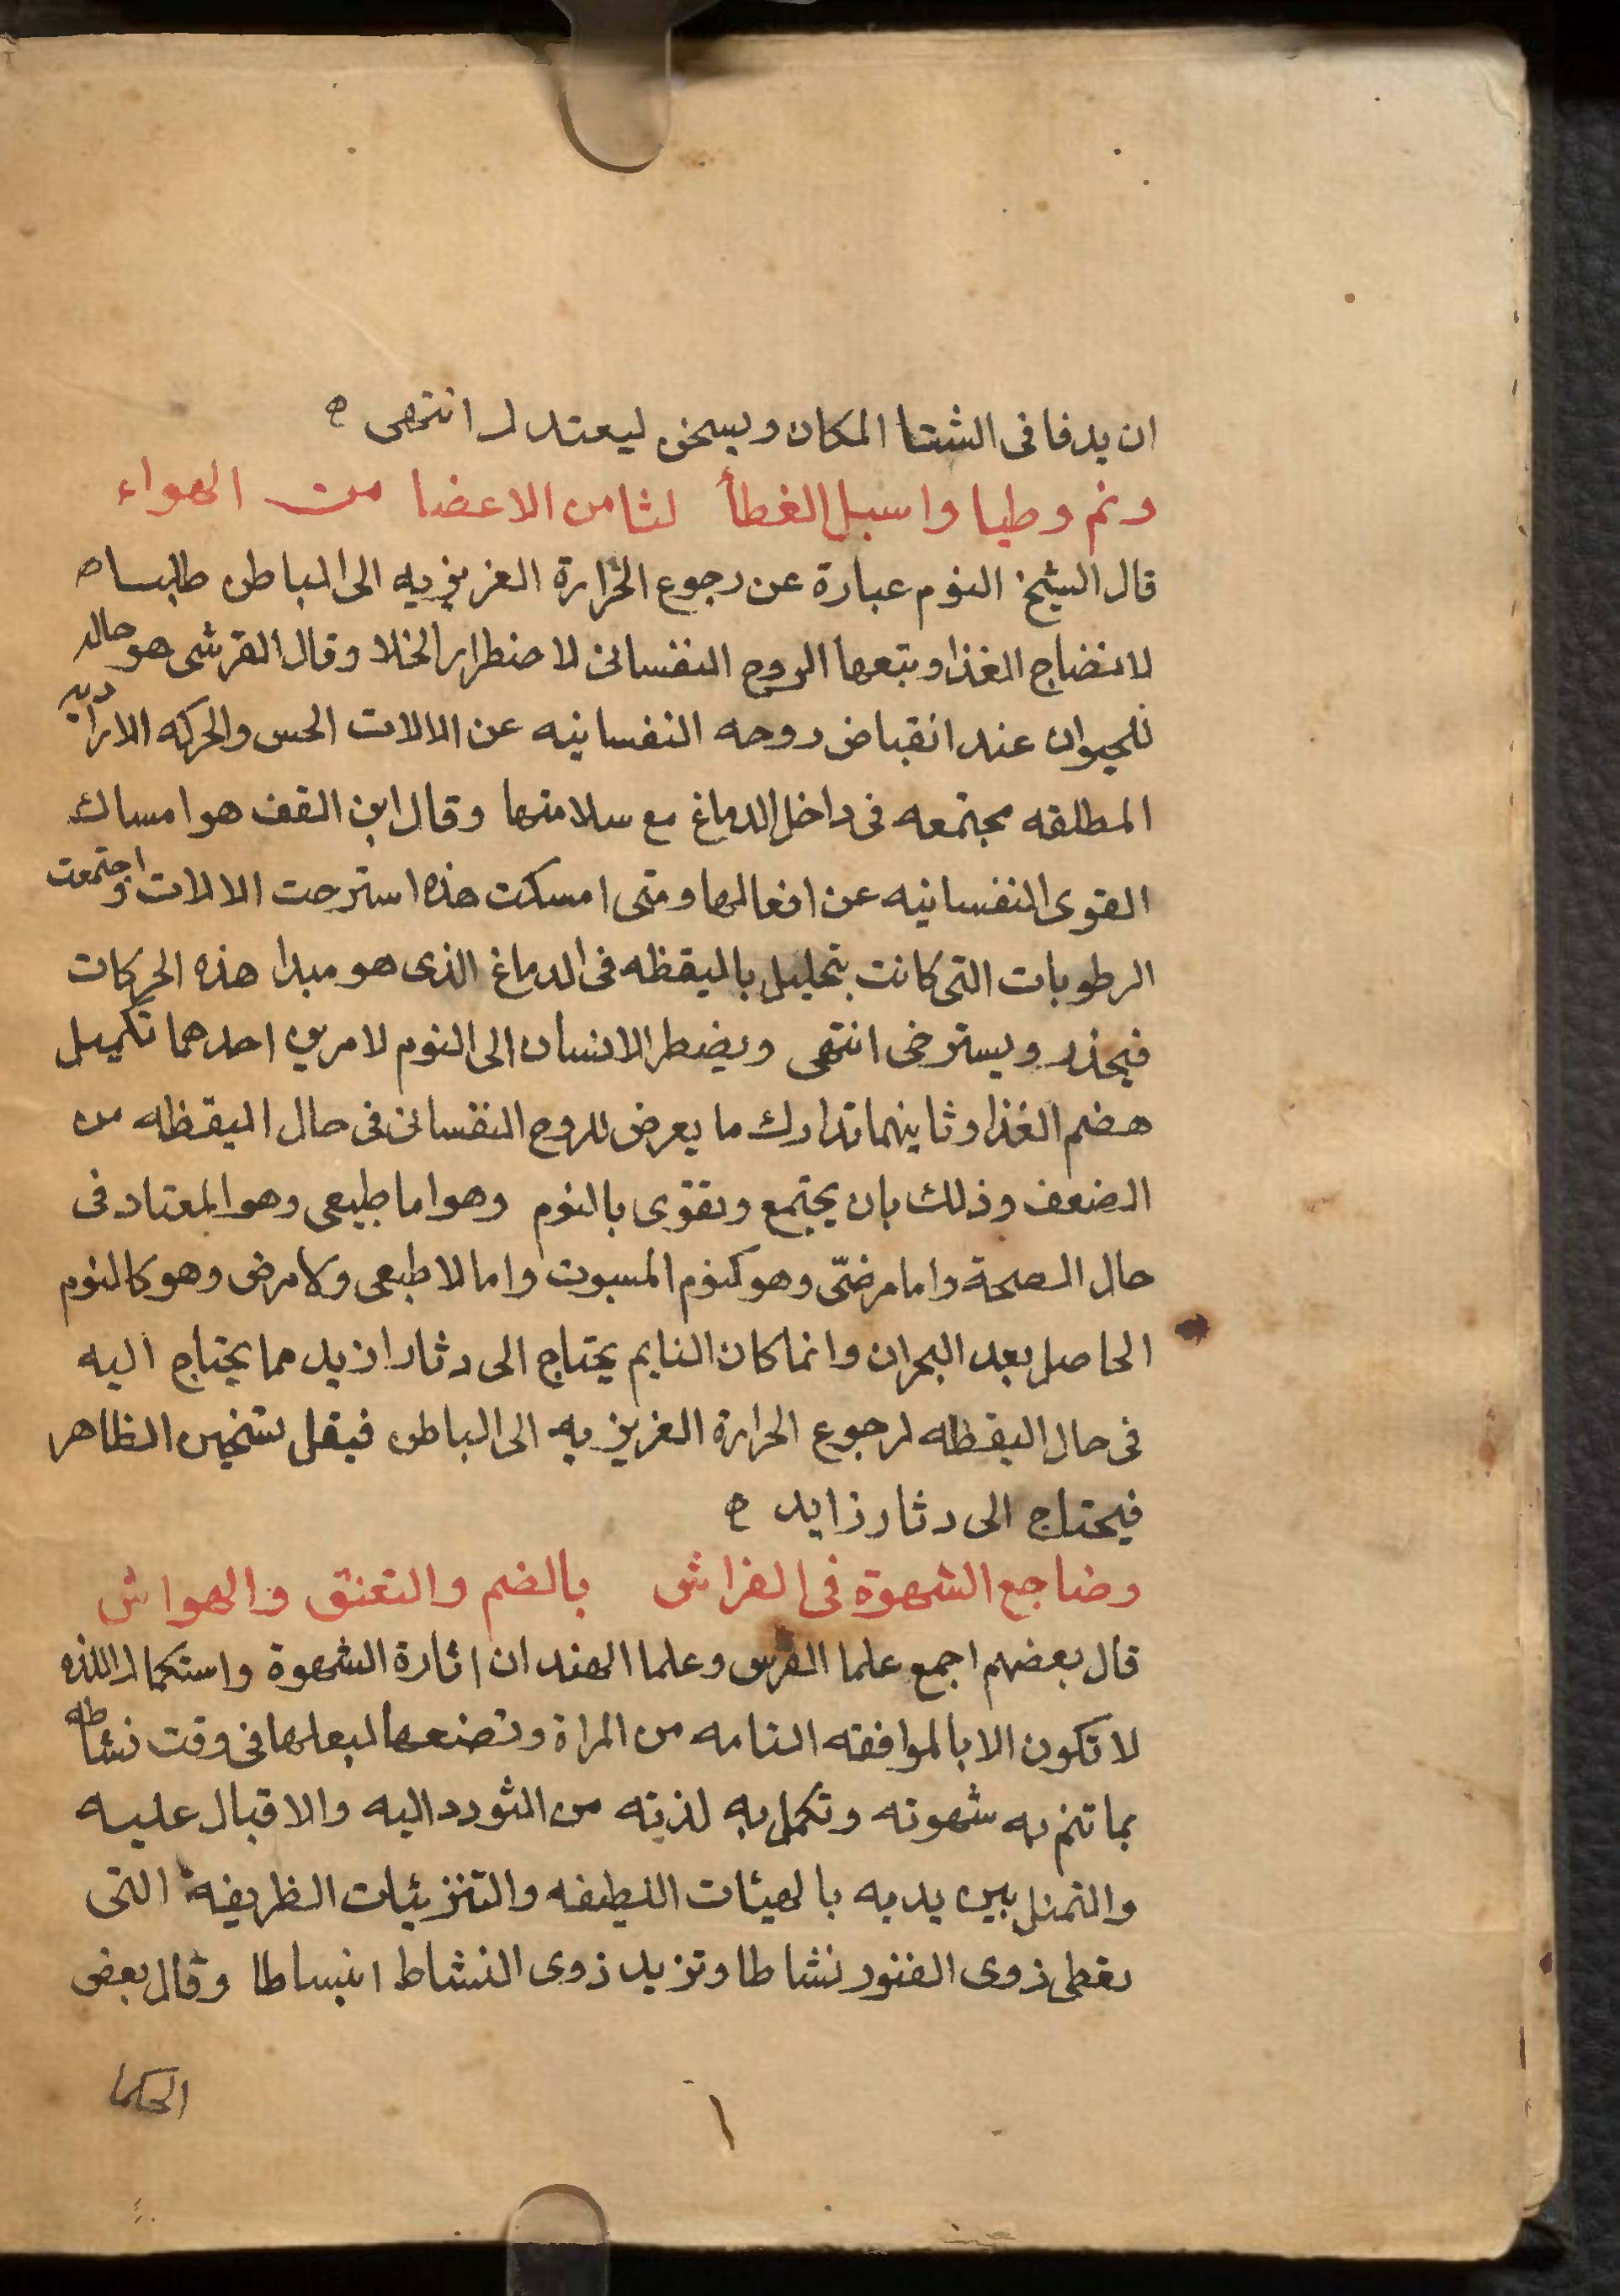 ان يدفا فى الشتا المكان ويسخن ليعتدل انتهى ه
ونم وطيا واسبل الغطأ لتامن الاعضا من الهواء
قال الشيخ النوم عبارة عن رجوع الحرارة الغريزيه الى الباطن طالبا ه
لانضاج الغذا ويتبعها الروح النفسانى لاضطرار الخلا وقال القرشى هو حاله
للحيوان عند انقباض روحه النفسانيه عن الالات الحس والحركه الاراديه
المطلقه مجتمعه فى داخل الدماغ مع سلامتها وقال ابن القف هو امساك
القوى النفسانيه عن افعالها ومتى امسكت هذه استرحت الالات واجتمعت
الرطوبات التى كانت بتحليل باليقظه فى الدماغ الذى هو مبدا هذه الحركات
فيخدر ويسترخى انتهى ويضطر الانسان الى النوم لامرين احدهما تكميل
هضم الغذا وثاينهما تدارك ما يعرض للروح النفسانى فى حال اليقظه من
الضعف وذلك بان يجتمع ويقوى بالنوم وهو اما طبيعى وهو المعتاد فى
حال الصحة واما مرضىّ وهو كنوم المسبوت واما لا طبعى ولا مرض وهو كالنوم
الحاصل بعد البحران وانما كان النايم يحتاج الى دثار ازيد مما يحتاج اليه
فى حال اليقظه لرجوع الحرارة الغريزيه الى الباطن فيقل تسخين الظاهر
فيحتاج الى دثار زايد ه
وضاجع الشهوة فى الفراش بالضم والتعنق والهواش
قال بعضهم اجمع علما الفرس وعلما الهند ان اثارة الشهوة واستكمال اللذه
لا تكون الا بالموافقه التامه من المراة وتصنعها لبعلها فى وقت نشاطه
بما تتم به شهوته وتكمل به لذته من التودد اليه والاقبال عليه
والتمثل بين يديه بالهيئات اللطيفه والتنزيئات الظريفة التى
يعطى ذوى الفتور نشاطا وتزيد ذوى النشاط انبساطا وقال بعض
الحكما
١